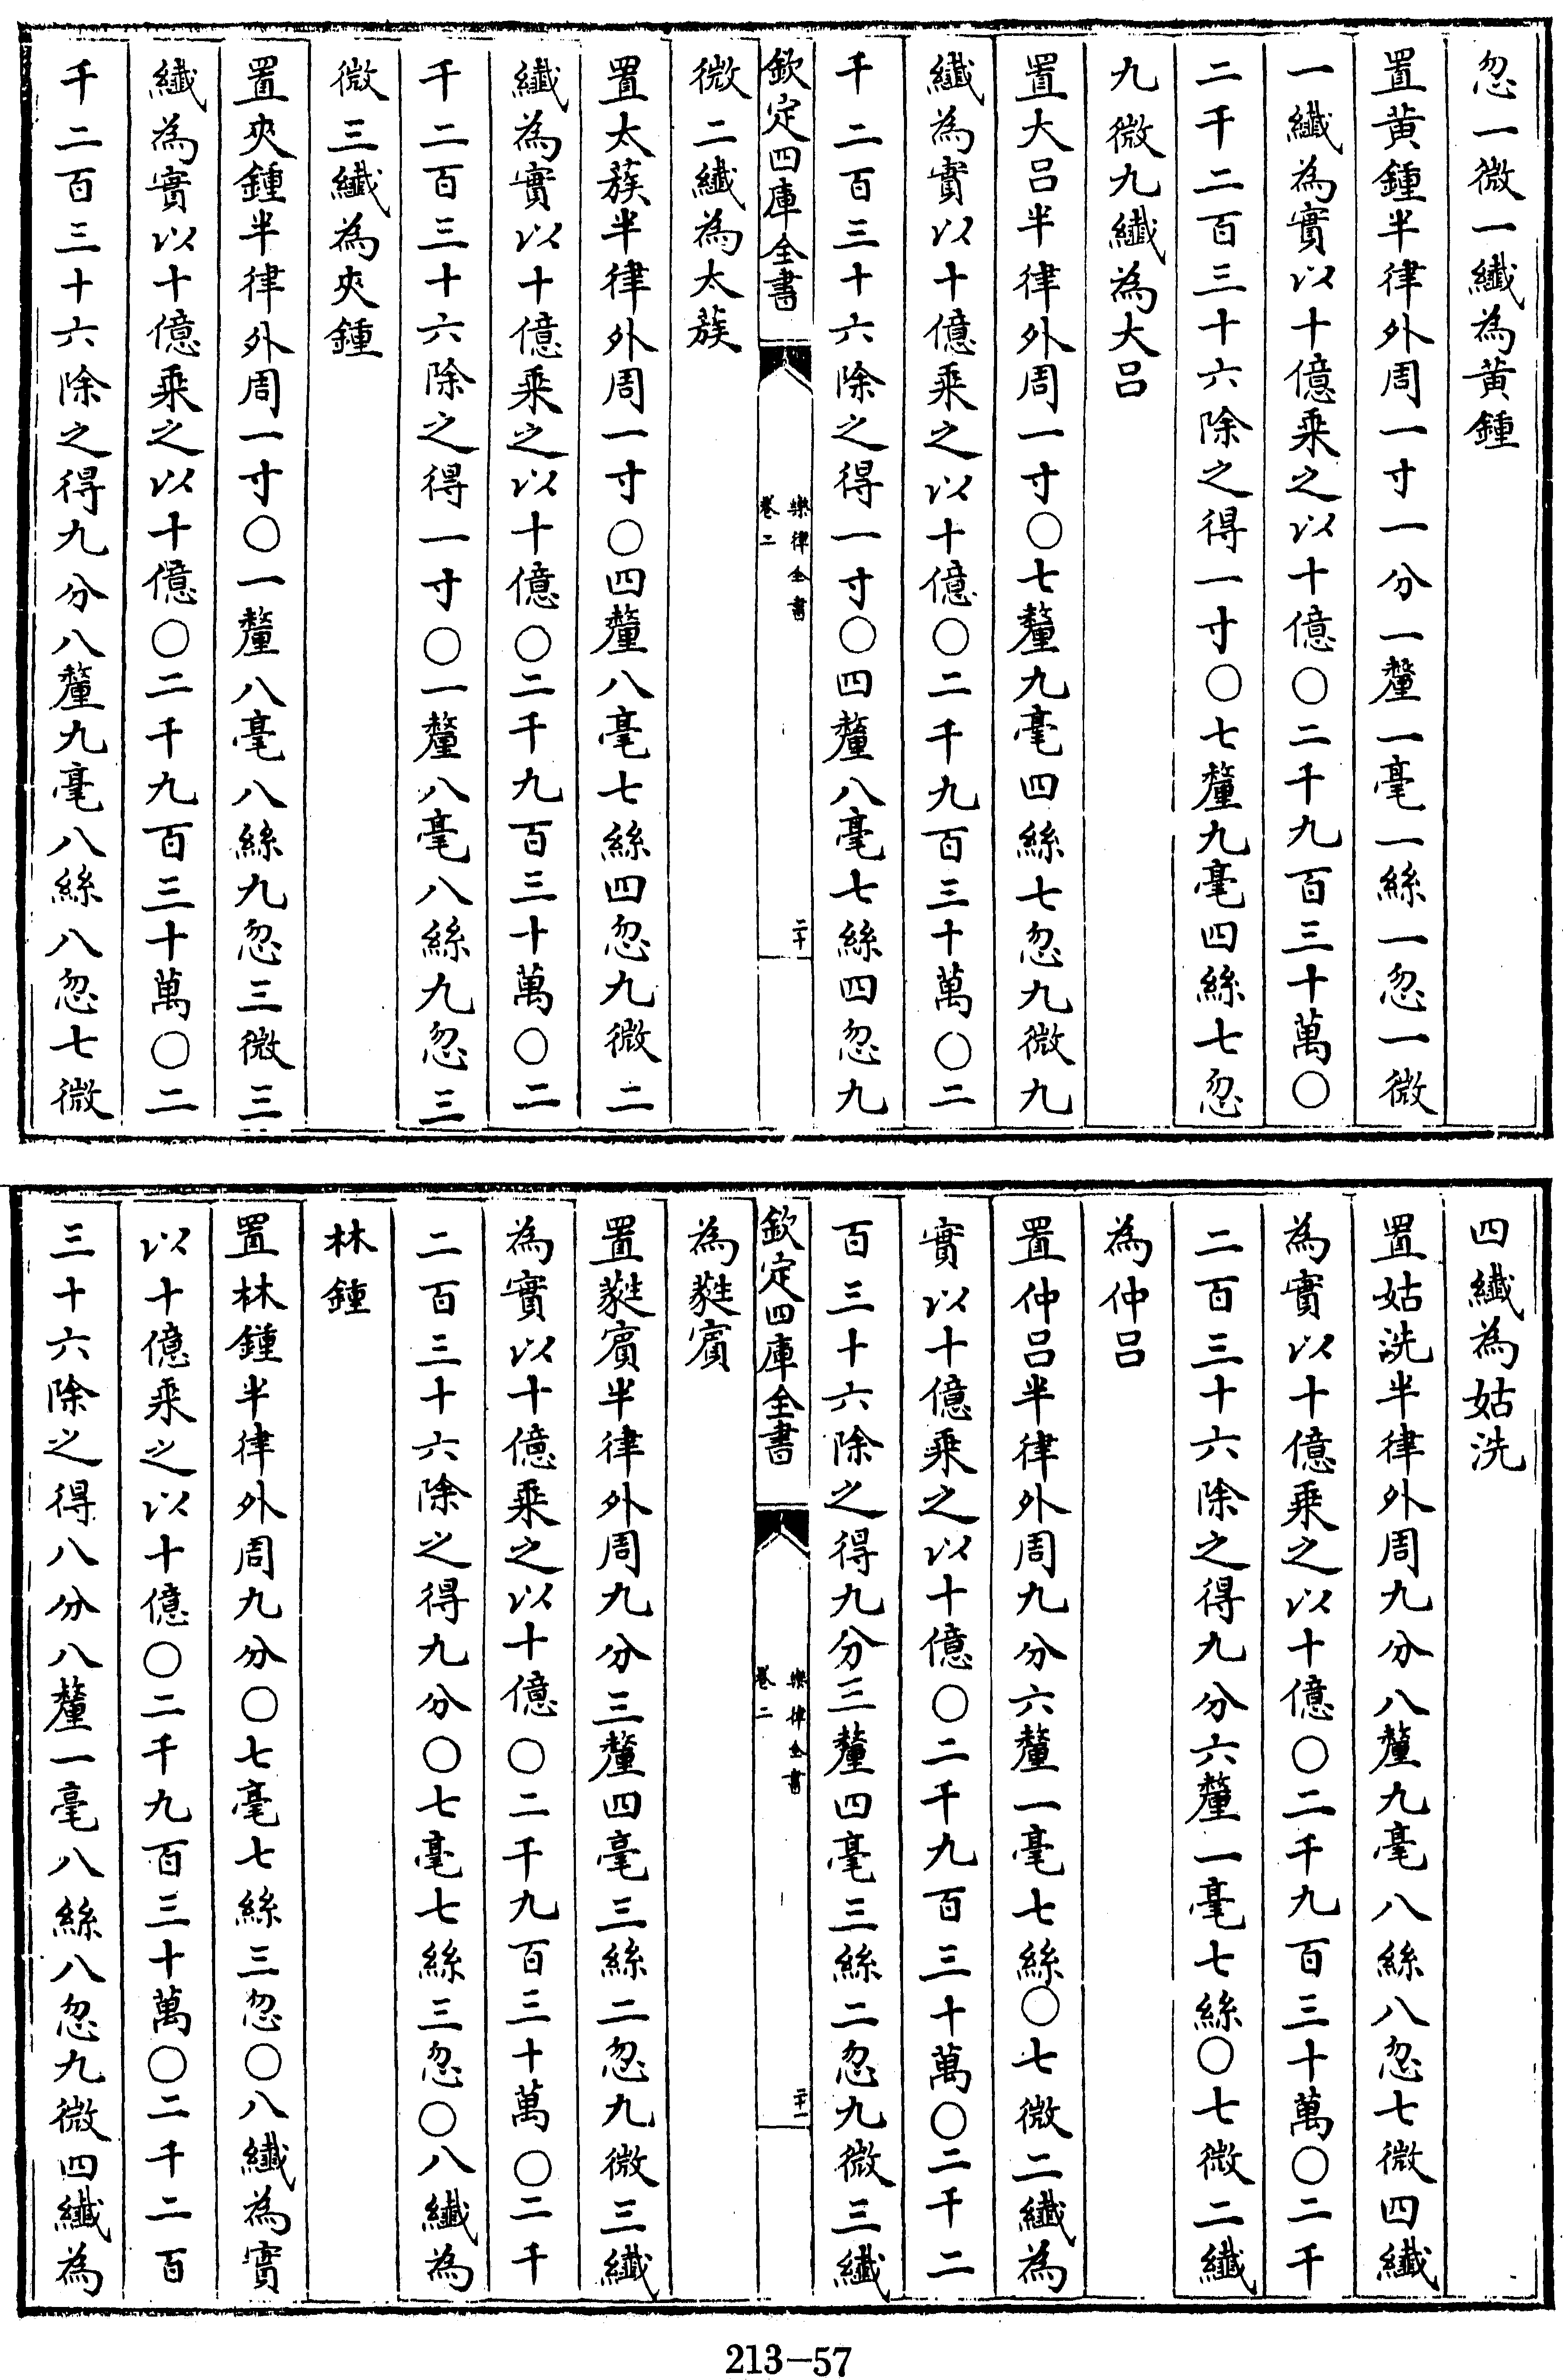 忽一微一纖為黃鍾
置黃鍾半律外周一寸一分一釐一毫一絲一忽一微
一纖為實以十億乘之以十億〇二千九百三十萬〇
二千二百三十六除之得一寸〇七釐九毫四絲七忽
九微九纖為大呂
置大呂半律外周一寸〇七釐九毫四絲七忽九微九
纖為實以十億乘之以十億〇二千九百三十萬〇二
千二百三十六除之得一寸〇四釐八毫七絲四忽九
欽定四庫全書
樂律全書
卷二
二十
微二纖為太蔟
置太蔟半律外周一寸〇四釐八毫七絲四忽九微二
纖為實以十億乘之以十億〇二千九百三十萬〇二
千二百三十六除之得一寸〇一釐八毫八絲九忽三
微三纖為夾鍾
置夾鍾半律外周一寸〇一釐八毫八絲九忽三微三
纖為實以十億乘之以十億〇二千九百三十萬〇二
千二百三十六除之得九分八釐九毫八絲八忽七微
四纖為姑洗
置姑洗半律外周九分八釐九毫八絲八忽七微四纖
為實以十億乘之以十億〇二千九百三十萬〇二千
二百三十六除之得九分六釐一毫七絲〇七微二纖
為仲呂
置仲呂半律外周九分六釐一毫七絲〇七微二纖為
實以十億乘之以十億〇二千九百三十萬〇二千二
百三十六除之得九分三釐四毫三絲二忽九微三纖
欽定四庫全書
樂律全書
卷二
二十一
為蕤賓
置蕤賓半律外周九分三釐四毫三絲二忽九微三纖
為實以十億乘之以十億〇二千九百三十萬〇二千
二百三十六除之得九分〇七毫七絲三忽〇八纖為
林鍾
置林鍾半律外周九分〇七毫七絲三忽〇八纖為實
以十億乘之以十億〇二千九百三十萬〇二千二百
三十六除之得八分八釐一毫八絲八忽九微四纖為
213-57